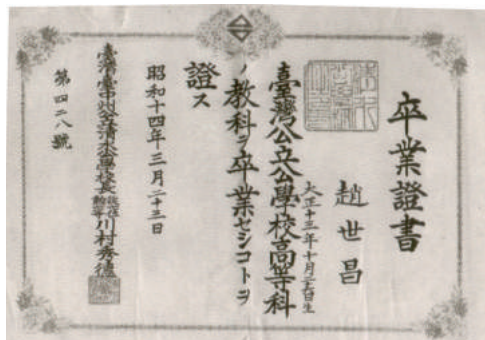 卒業證書
趙世昌
大正十三年十月 日生
臺灣公立公學校高等科
ノ教科ヲ卒業セシコトヲ
證ス
昭和十四年三月二十三日
臺灣臺中州 清水公學校長 川村秀德
第四二八號